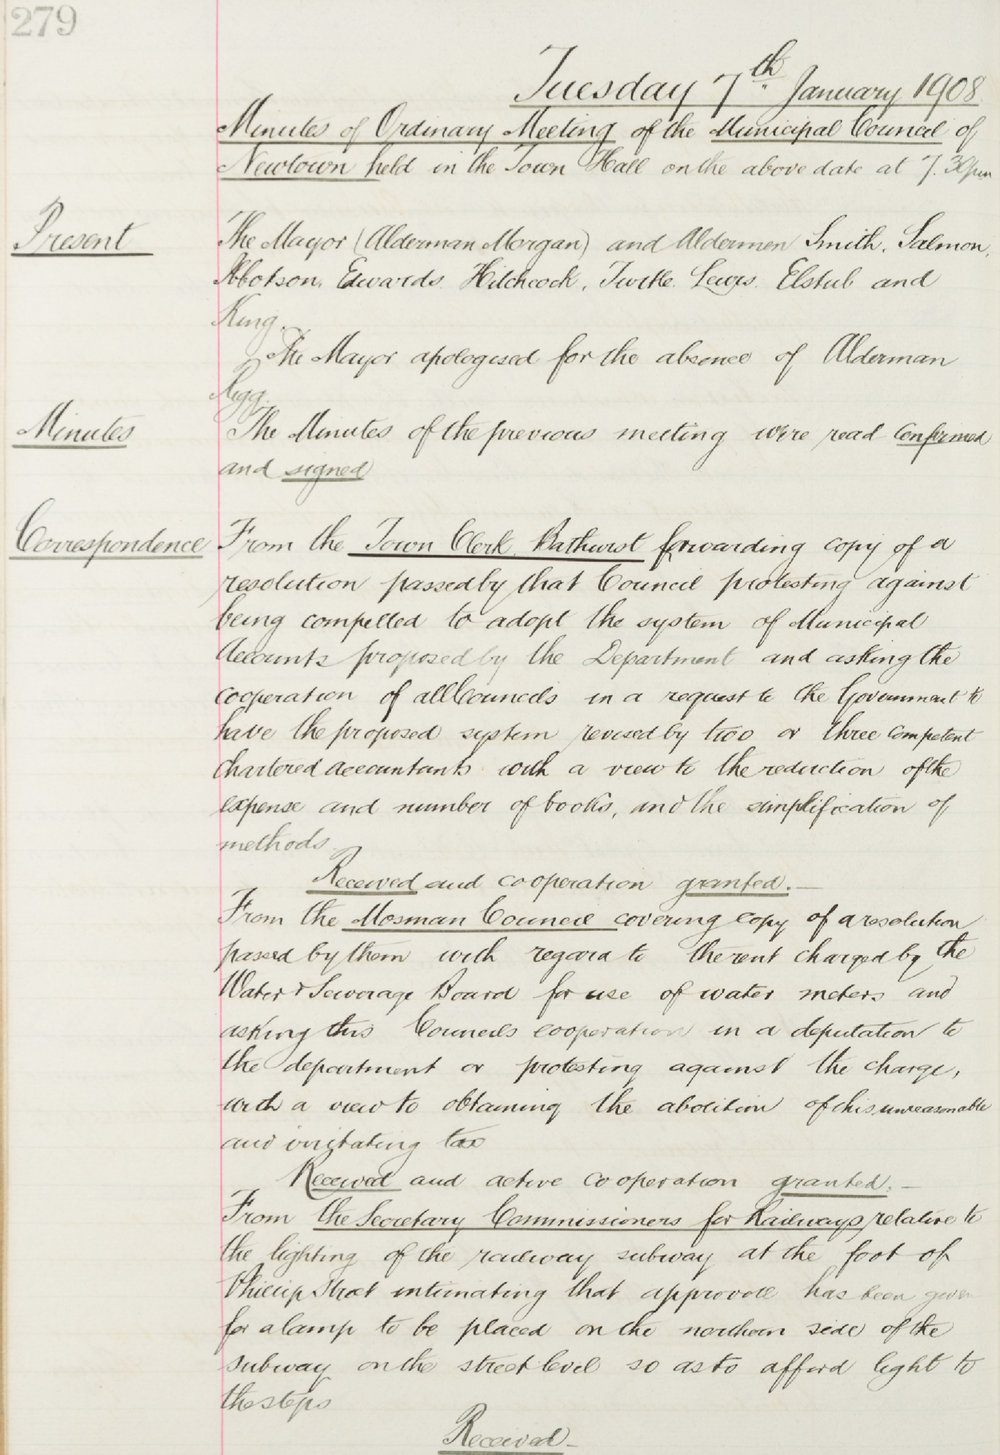 279
Tuesday 7th January 1908
Minutes of Ordinary Meeting of the Municipal Council of
Newtown held in the Town Hall on the above date at 7.30pm
Present
The Mayor (Alderman Morgan) and Aldermen Smith, Salmon,
Abbotson, Edwards, Hitchcock, Turtle, Lewis, Elstub and
King.
The Mayor apologised for the absence of Alderman
Rigg.
Minutes
The Minutes of the previous meeting were read Confirmed
and signed
Correspondence
From the Town Clerk Bathurst forwarding copy of a
resolution passed by that Council protesting against
being compelled to adopt the system of Municipal
Accounts proposed by the Department and asking the
cooperation of all Councils in a request to the Government to
have the proposed system revised by two or three competent
Chartered Accountants with a view to the reduction of the
expense and number of books, and the simplification of
methods
Received and cooperation granted.—
From the Mosman Council covering copy of a resolution
passed by them with regard to the rent charged by the
Water & Sewerage Board for use of water meters and
asking this Councils cooperation in a deputation to
the department or protesting against the charge,
with a view to obtaining the abolition of this unreasonable
and irritating tax
Received and active cooperation granted.—
From the Secretary Commissioners for Railways relative to
the lighting of the railway subway at the foot of
Phillip Street intimating that approval has been given
for a lamp to be placed on the northern side of the
subway on the street level so as to afford light to
the steps
Received—